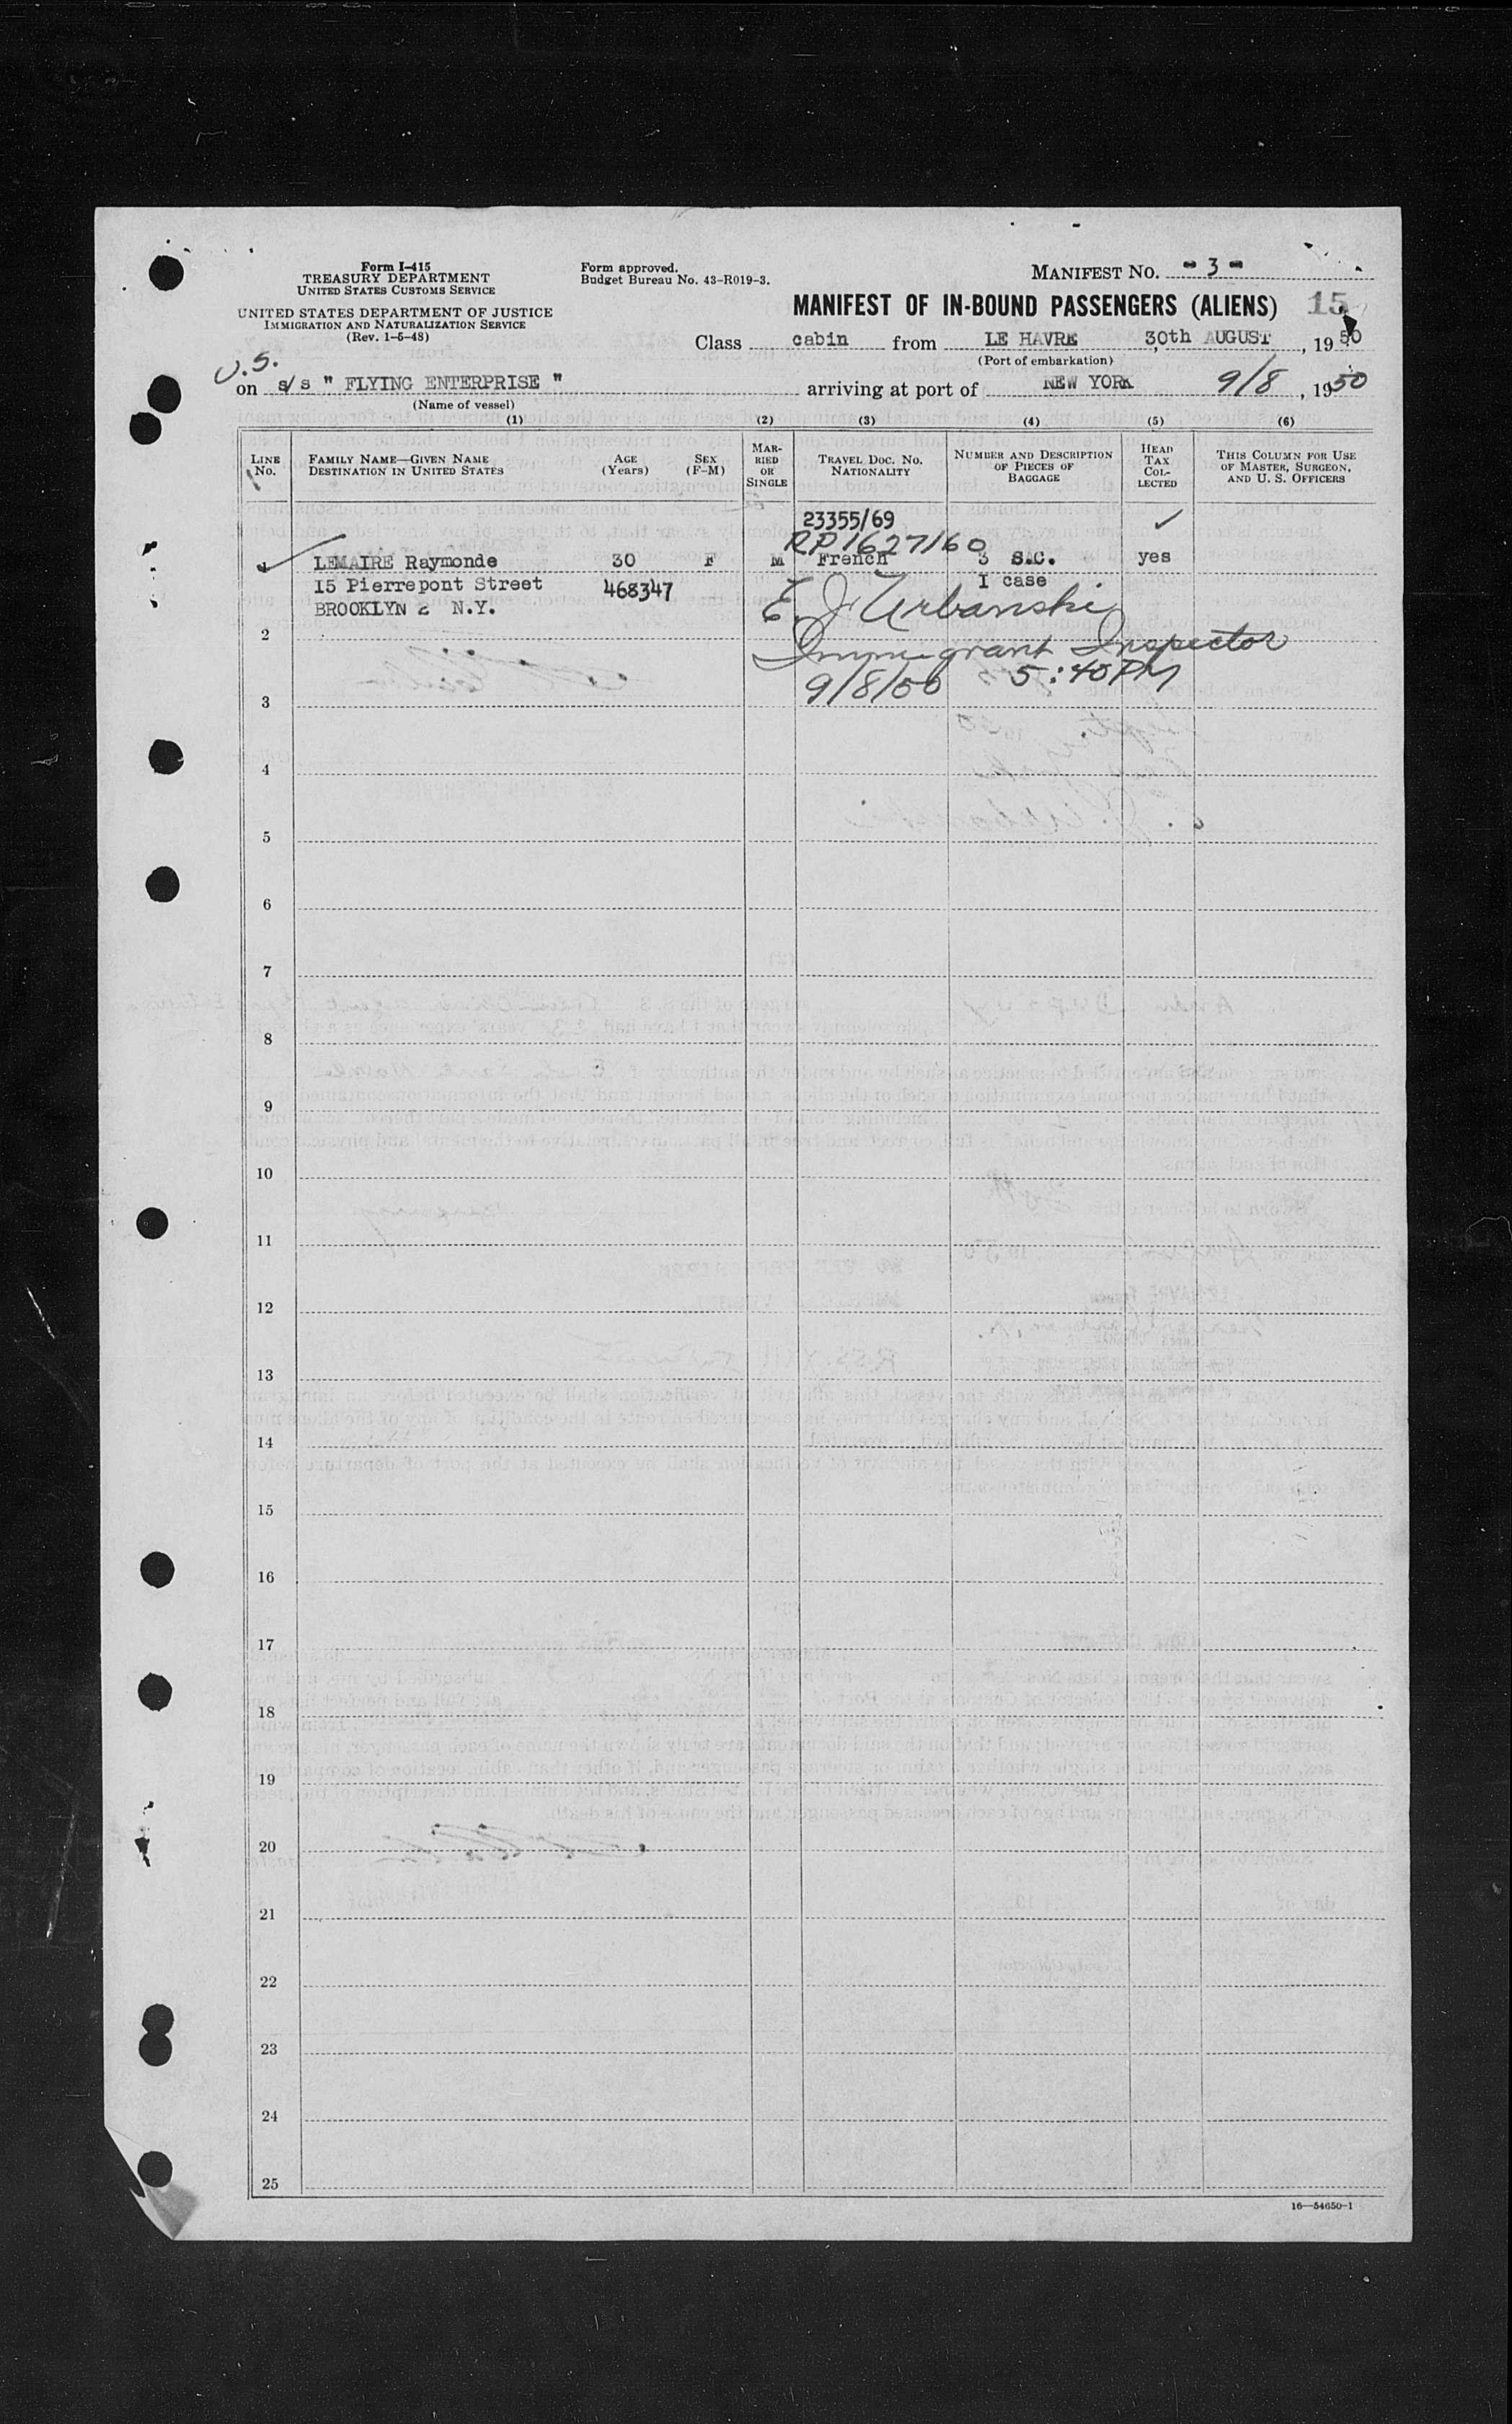 Form I-415
TREASURY DEPARTMENT
UNITED STATES CUSTOMS SERVICE
UNITED STATES DEPARTMENT OF JUSTICE
IMMIGRATION AND NATURALIZATION SERVICE
(Rev. 1-5-48)
Form approved.
Budget Bureau No. 43-R019-3.
MANIFEST NO. - 3 -
MANIFEST OF IN-BOUND PASSENGERS (ALIENS) 15
Class cabin from LE HAVRE 30th AUGUST, 1950
(Port of embarkation)
U.S.
on s/s " FLYING ENTERPRISE " arriving at port of NEW YORK 9/8, 1950
(Name of vessel)
(1) (2) (3) (4) (5) (6)
LINE No. FAMILY NAME—GIVEN NAME DESTINATION IN UNITED STATES AGE (Years) SEX (F-M) MARRIED OR SINGLE TRAVEL DOC. NO. NATIONALITY NUMBER AND DESCRIPTION OF PIECES OF BAGGAGE HEAD TAX COLLECTED THIS COLUMN FOR USE OF MASTER, SURGEON, AND U. S. OFFICERS
23355/69 ✓
RP 1627160
1 LEMAIRE Raymonde 30 F M French 3 S.C. yes
15 Pierrepont Street 468347 I case
BROOKLYN 2 N.Y. E. J. Urbanski
2 Immigrant Inspector
9/8/50 5:40 PM
3
4
5
6
7
8
9
10
11
12
13
14
15
16
17
18
19
20
21
22
23
24
25
16—54650-1